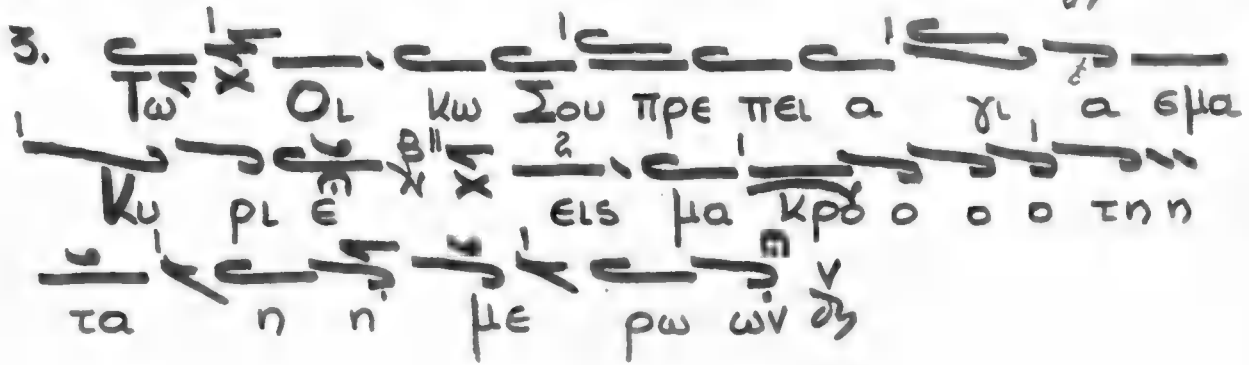 3. Τω Οι κω Σου πρε πει α γι α εμα
Κυ ρι ε εις μα κρο ο ο ο τη η
τα η η με ρω ων